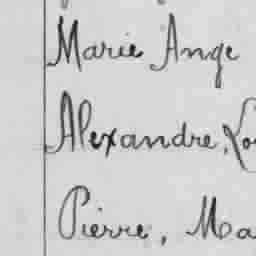 Marie Ange
Alexandre,
Pierre,